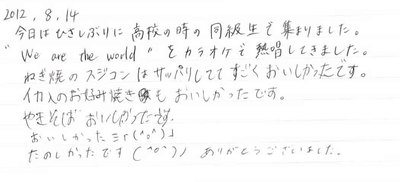 2012,8,14
今日はひさしぶりに高校の時の同級生で集まりました。
"We are the world"をカラオケで熱唱してきました。
ねぎ焼のスジコンはサッパリしててすごくおいしかったです。
イカ入のお好み焼きもおいしかったです。
やきそばおいしかったです。
おいしかった三r(^o^)」
たのしかったです(^o^)ノ ありがとうございました。